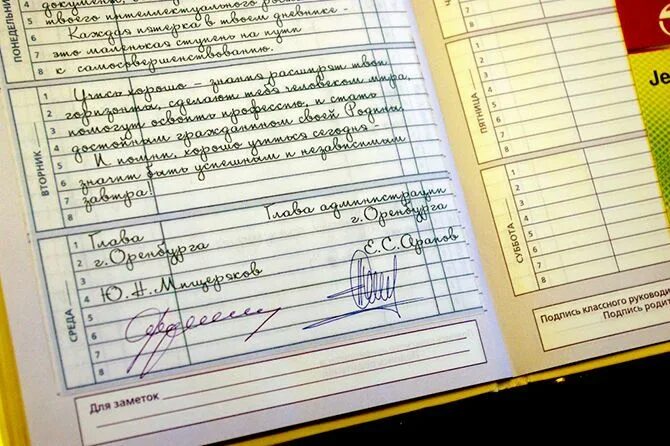 ПОНЕДЕЛЬНИК
твоего интеллектуального
6 Каждая пятёрка в твоем дневнике -
7 это маленькая ступень на пути
8 к самосовершенствованию.
ВТОРНИК
1 Учись хорошо - знания расширят твои
2 горизонты, сделают тебя человеком мира,
3 помогут освоить профессию, и стать
4 достойным гражданином своей Родины.
5 И помни, хорошо учиться сегодня -
6 значит быть успешным и независимым
7 завтра!
8
СРЕДА
1 Глава Глава администрации
2 г.Оренбурга г.Оренбурга
3 Е.С.Арапов
4 Ю.Н.Мищеряков
5
6
7
8
Для заметок
7
8
ПЯТНИЦА
1
2
3
4
5
6
7
8
СУББОТА
1
2
3
4
5
6
7
8
Подпись классного руководи
Подпись родит
Je